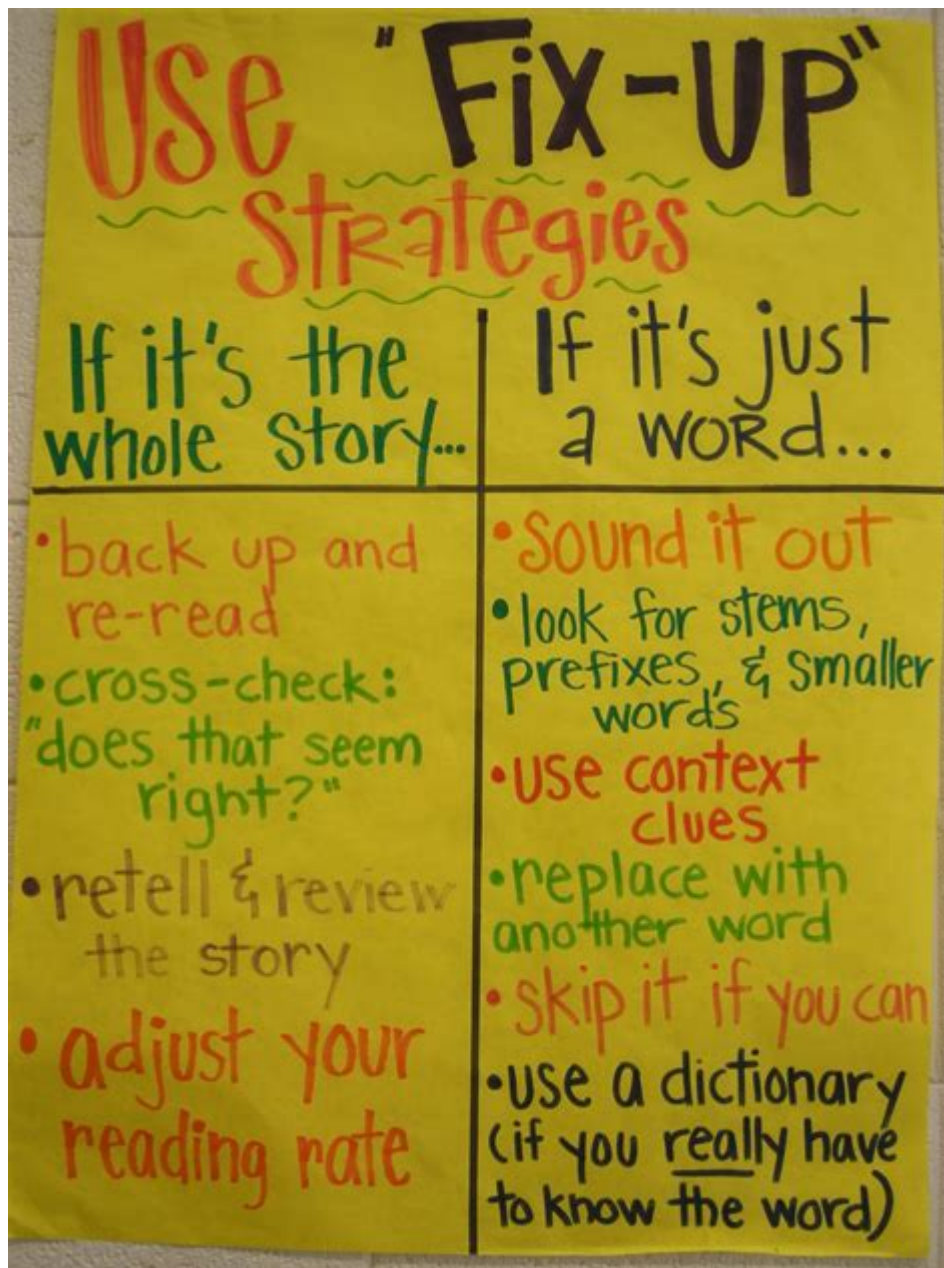 Use "Fix-UP"
Strategies
If it's the
whole story...
• back up and
re-read
• cross-check:
"does that seem
right?"
• retell & review
the story
• adjust your
reading rate
If it's just
a word...
• sound it out
• look for stems,
prefixes, & smaller
words
• use context
clues
• replace with
another word
• skip it if you can
• use a dictionary
(if you really have
to know the word)